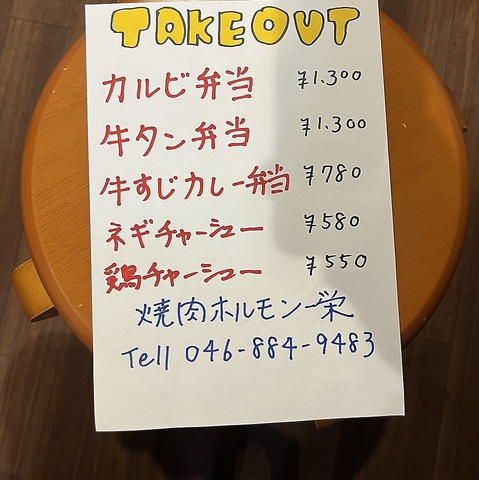 TAKEOUT
カルビ弁当 ¥1.300
牛タン弁当 ¥1.300
牛すじカレー弁当 ¥780
ネギチャーシュー ¥580
鶏チャーシュー ¥550
焼肉ホルモン一栄
Tell 046-884-9483